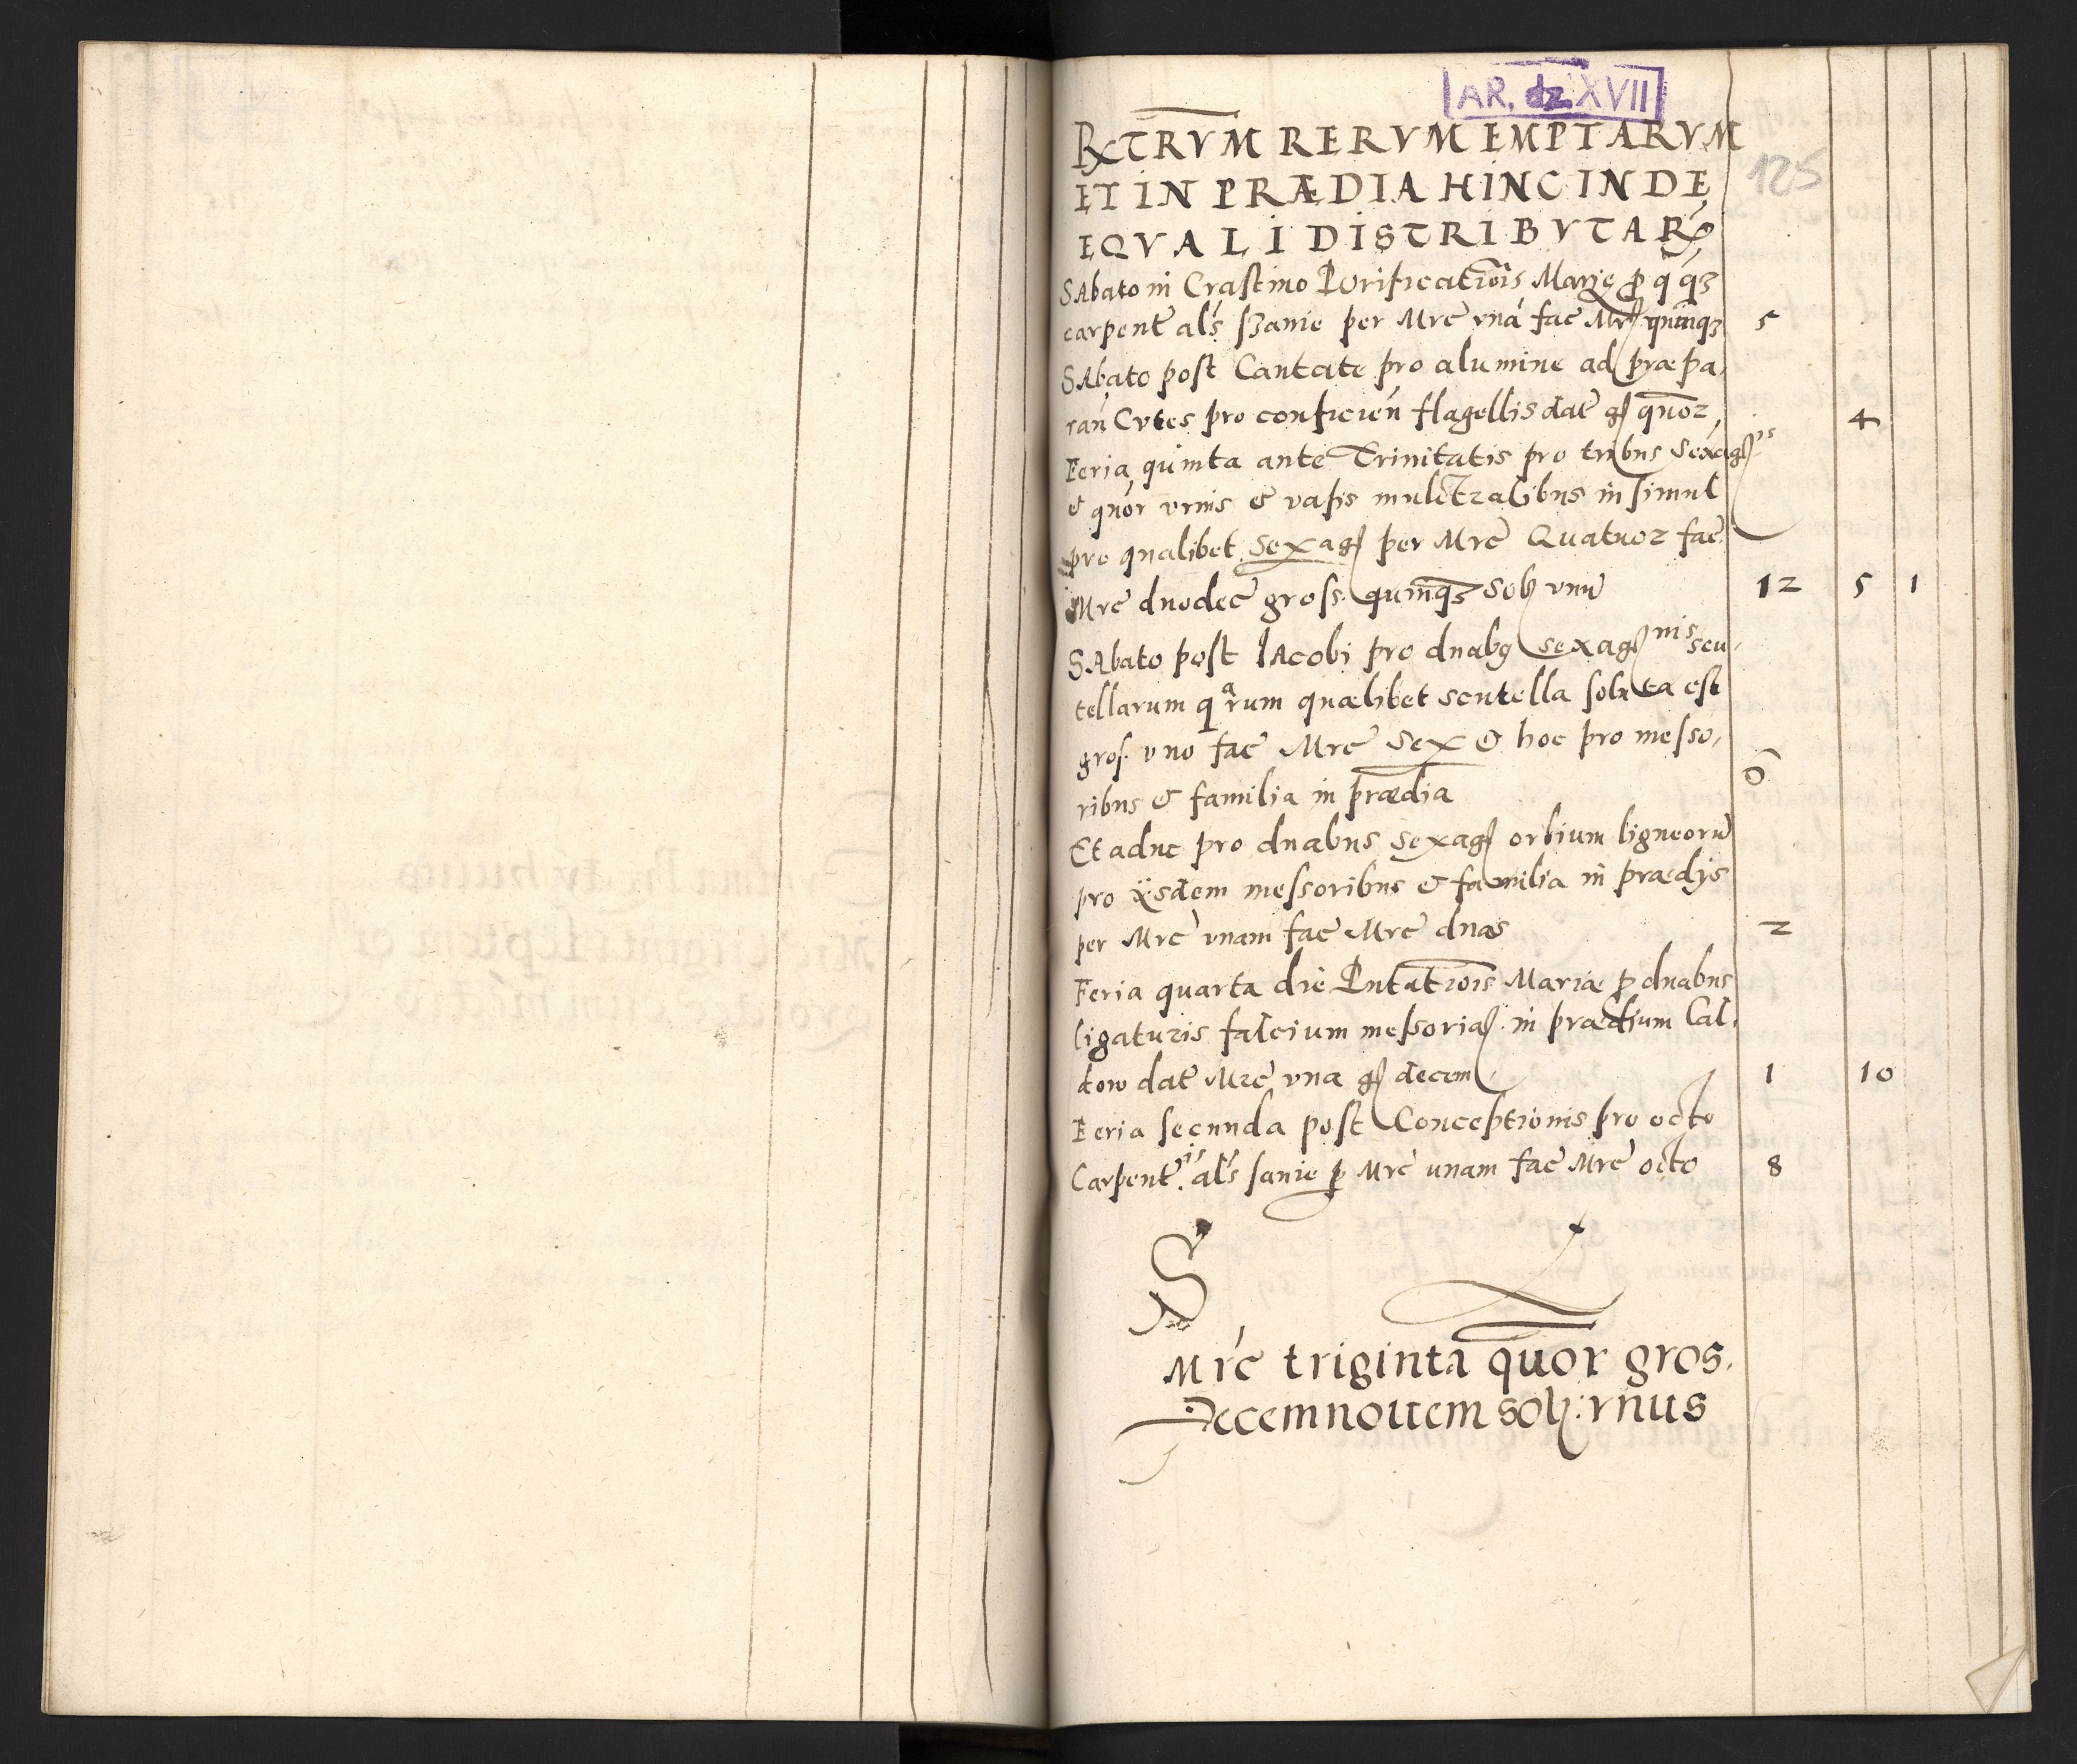 AR. dz. XVII
RXTRVM RERVM EMPTARVM
125
ET IN PRÆDIA HINC INDE
EQVALI DISTRIBVTAR
SAbato in Crastino Purificatiois Marię p q̄ qȝ
carpent als sʒanie per Mrc vná fac Mrc quinqȝ 5
SAbato post Cantate pro alumine ad præpa,
ran Cvtes pro conficien flagellis dat gs quor 4
Feria quinta ante Trinitatis pro tribus Sexag is
et quor vrnis & vasis mulctralibus in simul
pro qualibet Sexag per Mrc Quatuor fac
Mrc duodec gross. quinqȝ Sol vnu 12 5 1
SAbato post IAcobi pro duabq sexag nis scu,
tellarum q a rum quælibet scutella soluta est
gros. vno fac Mrc Sex & hoc pro messo, 6
ribus & familia in prædia
Et aduc pro duabus sexag orbium ligneoru
pro ijsdem messoribus & familia in prædijs
per Mrc vnam fac Mrc duas 2
Feria quarta die Pntatiois Mariæ p duabus
ligaturis falcium messoria in prædium Cal,
dow dat Mrc vna gs decem 1 10
Feria secunda post Conceptionis pro octo
Carpent is als sanie p Mrc unam fac Mrc octo 8
S
Mrc triginta quor gros.
Decemnouem sol: vnus